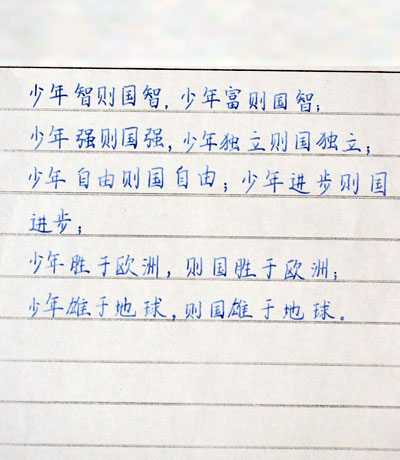 少年智则国智，少年富则国智；
少年强则国强，少年独立则国独立；
少年自由则国自由；少年进步则国
进步；
少年胜于欧洲，则国胜于欧洲；
少年雄于地球，则国雄于地球。